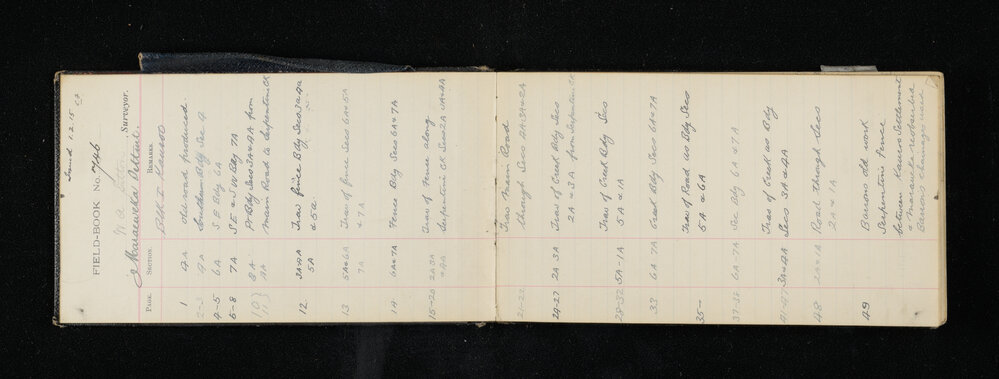 Issued 4.2.15
FIELD-BOOK No. 746
Surveyor.
Maraeweka Settlmt
PAGE. SECTION. REMARKS.
Blk I Kauroo
1 4A old road produced
2-3 4A Southern Bdy Sec 4
4-5 6A S E Bdy 6A
6-8 7A S E & S W Bdy 7A
Pt Bdy Secs 3A & 8A from
8A Main Road to Serpentine Ck
12 3A4A Trav fence Bdy Secs 3A 4A
5A & 5A
13 5A & 6A Trav of fence Secs 6A & 5A
7A & 7A
14 6A & 7A Fence Bdy Secs 6A & 7A
15-20 2A 3A Trav of Fence along
& 4A Serpentine Ck Secs 2A 3A & 4A
21-23 Trav Main Road
through Secs 2A 3A & 4A
24-27 2A 3A Trav of Creek Bdy Secs
2A & 3A from Serpentine Ck
28-32 5A-1A Trav of Creek Bdy Secs
5A & 1A
33 6A 7A Creek Bdy Secs 6A & 7A
35- Trav of Road as Bdy Secs
5A & 6A
37-38 6A-7A Sec Bdy 6A & 7A
41-47 3A & 4A Trav of Creek as Bdy
Secs 3A & 4A
48 2A & 1A Road through Secs
2A & 1A
49 Barrons old work
Serpentine fence
between Kauro Settlement
& Maraweka
Barrons chainages used